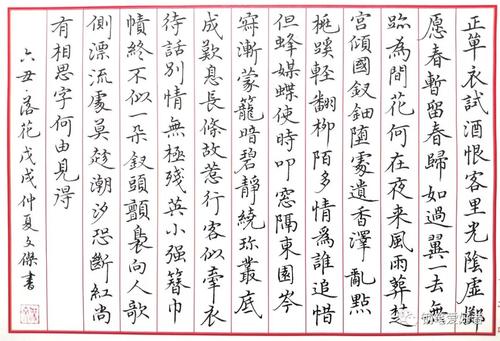 正單衣試酒恨客里光陰虛擲
愿春暫留春歸如過翼一去無
跡為間花何在夜来風雨葬楚
宮傾國釵鈿墮處遺香澤亂點
桃蹊輕翻柳陌多情為誰追惜
但蜂媒蝶使時叩窓隔東園岑
寂漸蒙籠暗碧靜繞珎叢底
成歎息長條故惹行客似牽衣
待話別情無極殘英小强簪巾
幘終不似一朵釵頭顫裊向人欹
側漂流處莫趁潮汐恐斷紅尚
有相思字何由見得
六丑·落花戊戌仲夏文傑書